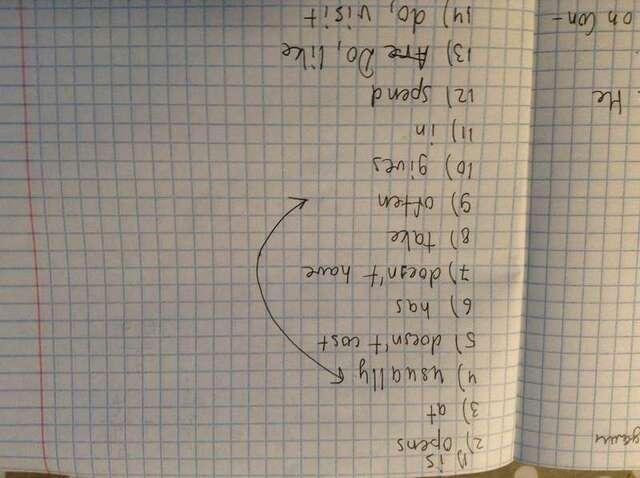 дами
1) is
2) opens
3) at
4) usually
5) doesn't cost
6) has
7) doesn't have
8) take
9) often
10) gives
11) in
. He
12) spend
.
13) Are Do, like
on Con-
14) do, visit